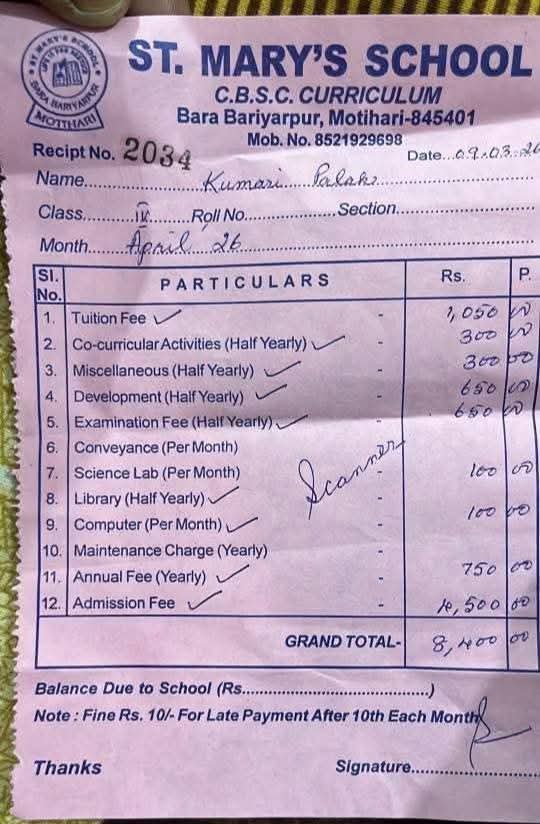 ST. MARY'S SCHOOL
BARA BARIYARPUR
MOTIHARI
ST. MARY'S SCHOOL
C.B.S.C. CURRICULUM
Bara Bariyarpur, Motihari-845401
Mob. No. 8521929698
Recipt No. 2034 Date...09.03.26
Name.....Kumari Palak
Class.....IV.....Roll No..................Section..................
Month.....April 26
Sl. No. PARTICULARS Rs. P.
1. Tuition Fee ✓ - 1,050 00
2. Co-curricular Activities (Half Yearly) ✓ - 300 00
3. Miscellaneous (Half Yearly) ✓ - 300 00
4. Development (Half Yearly) ✓ - 650 00
5. Examination Fee (Half Yearly) ✓ - 650 00
6. Conveyance (Per Month) -
Scanner
7. Science Lab (Per Month) -
8. Library (Half Yearly) ✓ - 100 00
9. Computer (Per Month) ✓ - 100 00
10. Maintenance Charge (Yearly) -
11. Annual Fee (Yearly) ✓ - 750 00
12. Admission Fee ✓ - 4,500 00
GRAND TOTAL- 8,400 00
Balance Due to School (Rs.......................................)
Note : Fine Rs. 10/- For Late Payment After 10th Each Month
Thanks Signature.........................